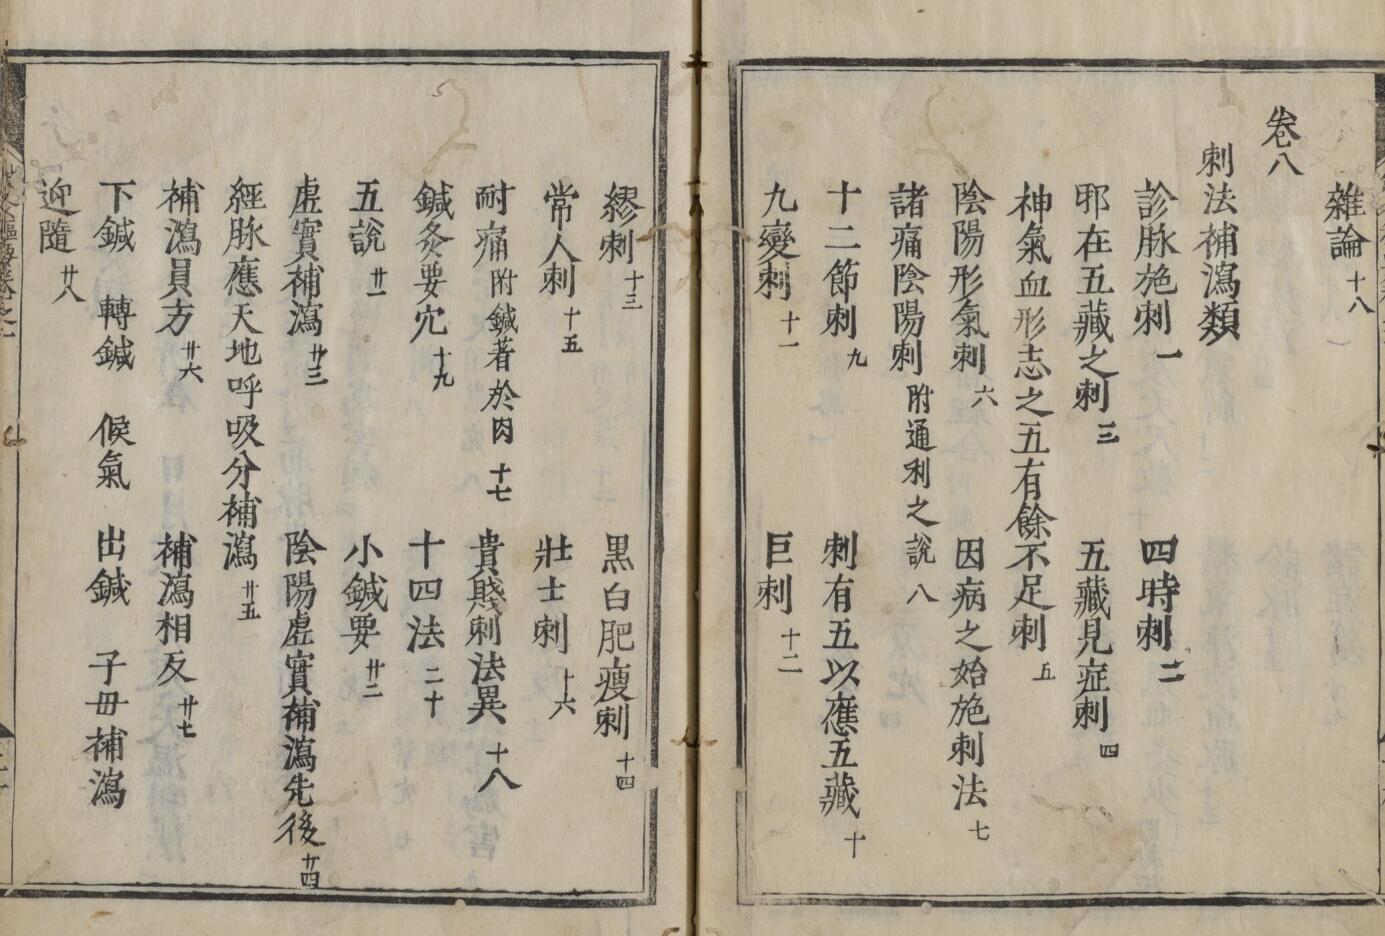 雜論 十八
卷八
刺法補瀉類
診脉施刺 一 四時刺 二
耶在五藏之刺 三 五藏見症刺 四
神氣血形志之五有餘不足刺 五
陰陽形氣刺 六 因病之始施刺法 七
諸痛陰陽刺 附通利之說 八
十二節刺 九 刺有五以應五藏 十
九變刺 十一 巨刺 十二
繆刺 十三 黑白肥瘦刺 十四
常人刺 十五 壯士刺 十六
耐痛 附鍼著於肉 十七 貴賤刺法異 十八
鍼灸要穴 十九 十四法 二十
五說 廿一 小鍼要 廿二
虛實補瀉 廿三 陰陽虛實補瀉先後 廿四
經脉應天地呼吸分補瀉 廿五
補瀉員方 廿六 補瀉相反 廿七
下鍼 轉鍼 候氣 出鍼 子毋補瀉
迎隨 廿八